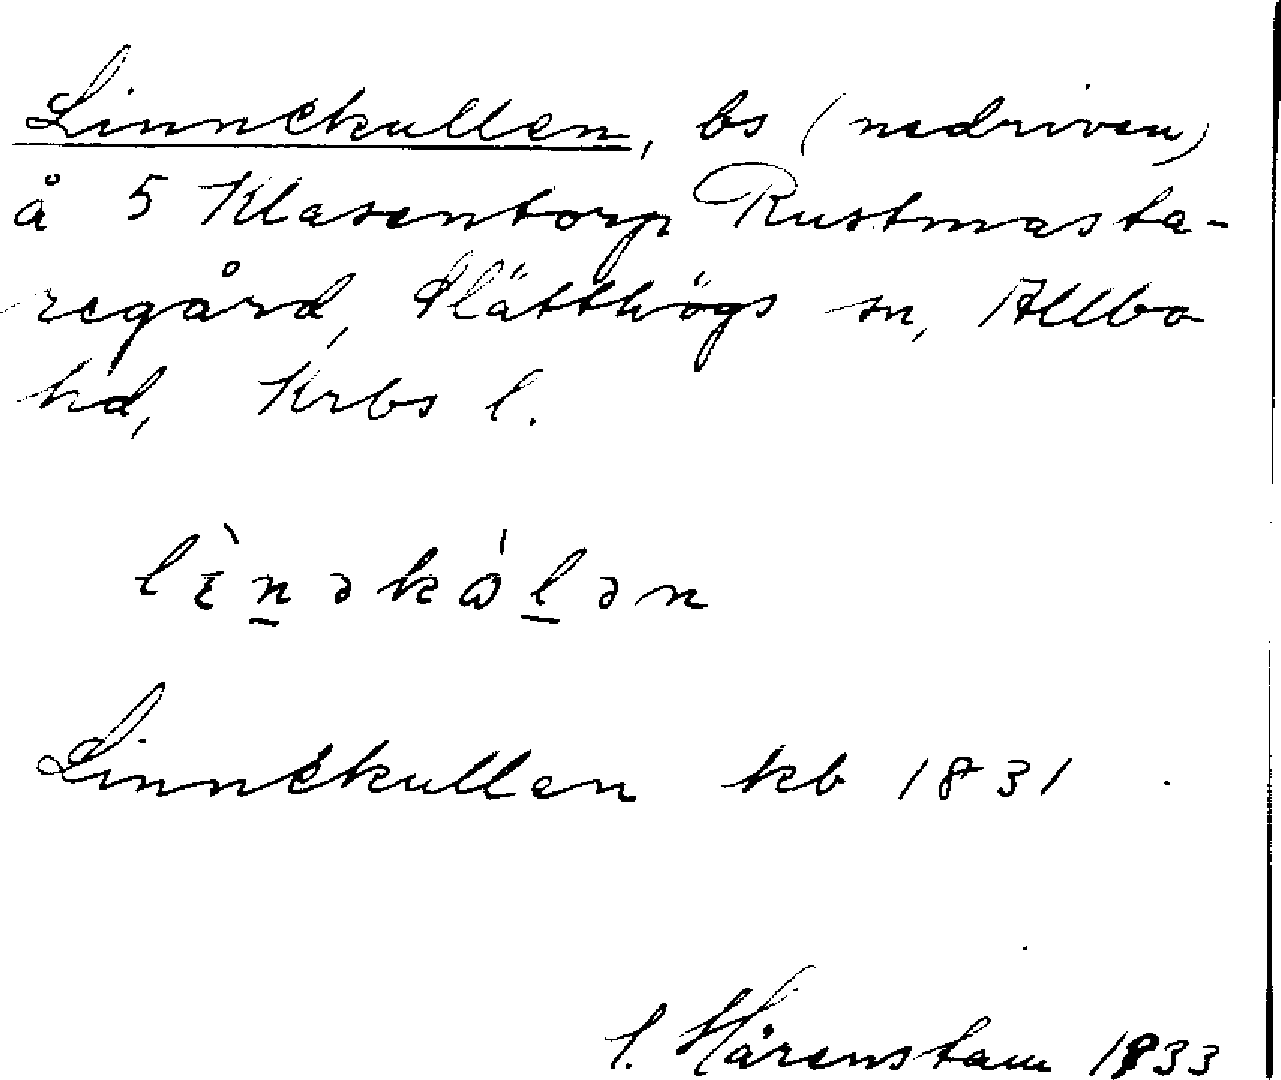 Linnekullen, bs (nedriven)
å 5 Klasentorp Rustmasta-
regård, Slätthögs sn, Allbo
hd, Krbs l.
lìn̲əkɷ́l̲ən
Linnekullen kb 1831
Härenstam 1933